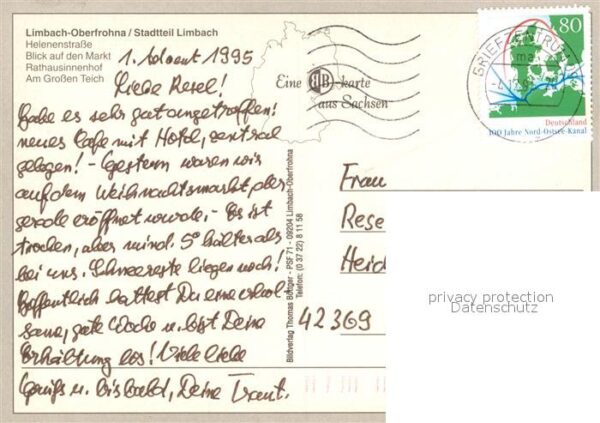 Limbach-Oberfrohna / Stadtteil Limbach
Helenenstraße
Blick auf den Markt
Rathausinnenhof
Am Großen Teich
1. Advent 1995
Liebe Resel!
Habe es sehr gut angetroffen!
neues Cafe mit Hotel, zentral
gelegen! - Gestern waren wir
auf dem Weihnachtsmarkt, der
gerade eröffnet wurde, - Es ist
trocken, aber mind. 5° kälter als
bei uns. Schneereste liegen noch!
Hoffentlich hattest Du eine erhol-
same, gute Woche u. bist Deine
Erkältung los! Viele liebe
Grüße u. bis bald, Deine Traut.
Eine RB-karte
aus Sachsen
Bildverlag Thomas Böttger - PSF 71 - 09204 Limbach-Oberfrohna
Telefon: (0 37 22) 8 11 58
BRIEFZENTRUM
80
Deutschland
100 Jahre Nord-Ostsee-Kanal
Frau
Rese
Heid
42369
privacy protection
Datenschutz